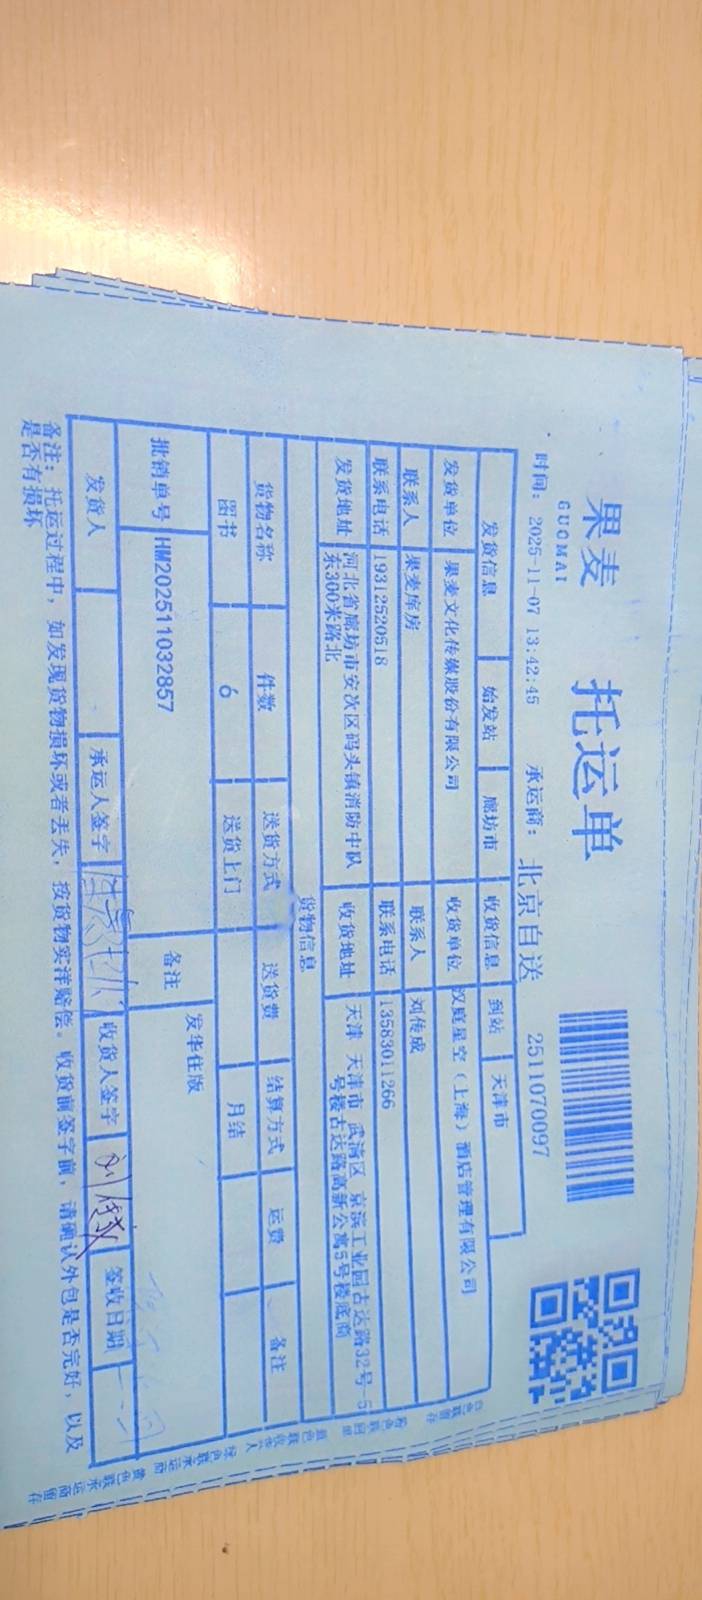 果麦 托运单
GUOMAI
时间：2025-11-07 13:42:45 承运商：北京自送 2511070097
发货信息 始发站 廊坊市 收货信息 到站 天津市
发货单位 果麦文化传媒股份有限公司 收货单位 汉庭星空（上海）酒店管理有限公司
联系人 果麦库房 联系人 刘传成
联系电话 19312520518 联系电话 13583011266
发货地址 河北省廊坊市安次区码头镇消防中队东300米路北 收货地址 天津 天津市 武清区 京滨工业园古达路32号-5号楼古达路高新公寓5号楼底商
货物信息
货物名称 件数 送货方式 送货费 结算方式 运费 备注
图书 6 送货上门 月结
批销单号 HM202511032857 备注 发华住版
发货人 承运人签字 收货人签字 签收日期
备注：托运过程中，如发现货物损坏或者丢失，按货物实洋赔偿。收货前签字前，请确认外包是否完好，以及
是否有损坏